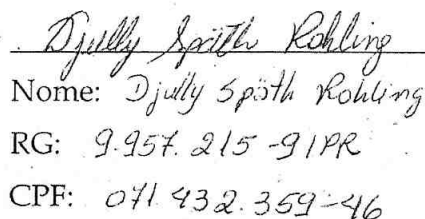 Djully Späth Rohling
Nome: Djully Späth Rohling
RG: 9.957.215-9/PR
CPF: 071.432.359-46